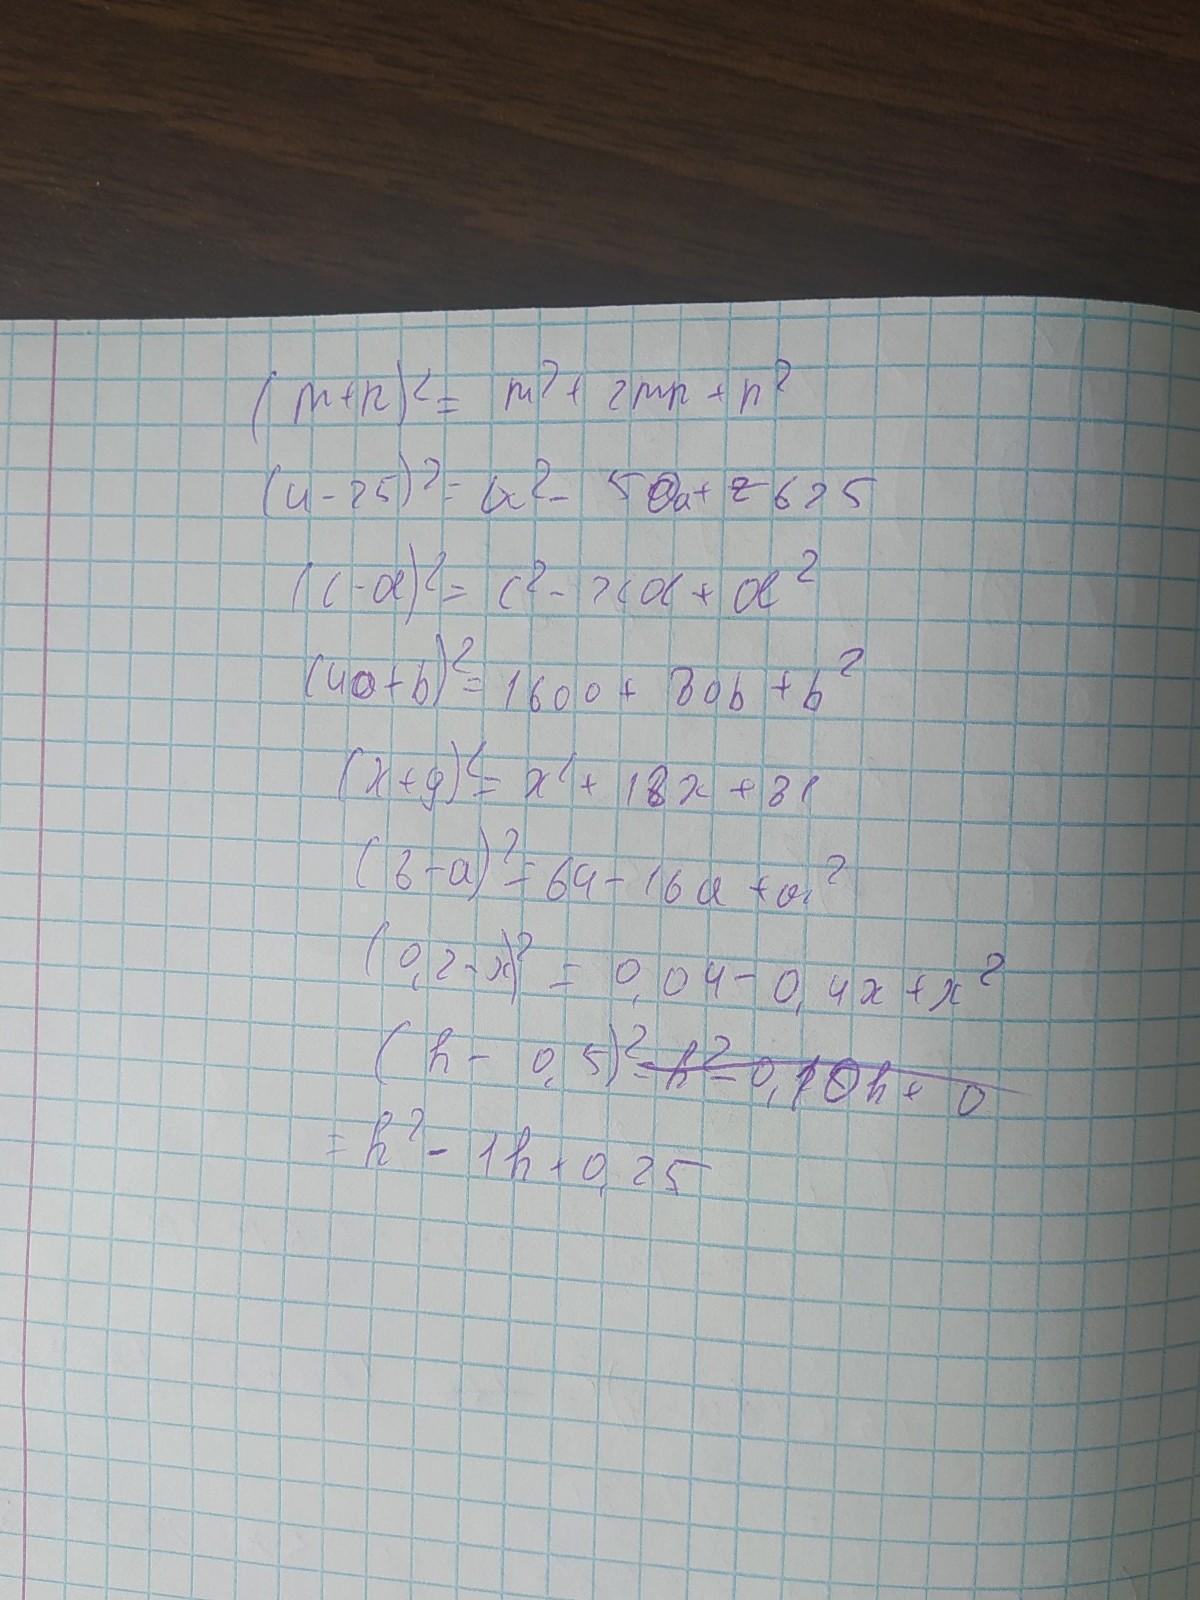 (m+n)²= m²+ 2mn+n²
(u-25)²= u²- 50u+ 2625
(c-d)²= c²- 2cd+ d²
(40+b)²= 1600+ 80b+b²
(x+9)²= x²+ 18x+81
(8-a)²= 64-16a+a²
(0,2-x)² = 0,04-0,4x+x²
(h- 0,5)²=h²-0,10h+ 0
= h²- 1h+0,25